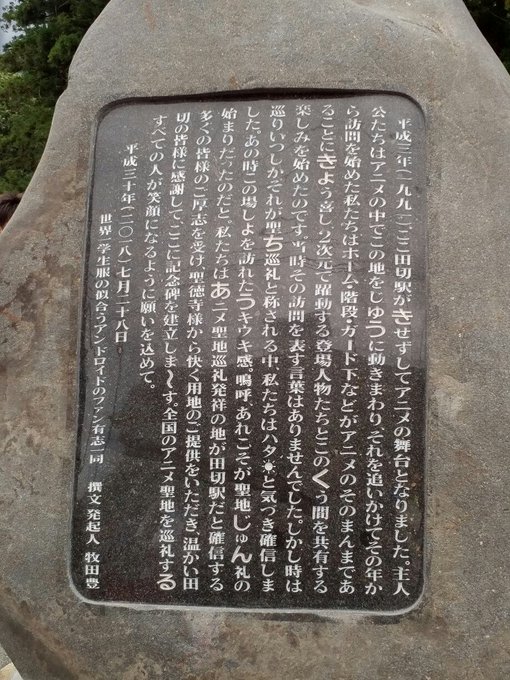 平成三年(一九九一)ここ田切駅がきせずしてアニメの舞台となりました。主人
公たちはアニメの中でこの地をじゆうに動きまわり、それを追いかけてその年か
ら訪問を始めた私たちはホーム・階段・ガード下などがアニメのそのまんまであ
ることにきょう喜し、2次元で躍動する登場人物たちとこのくう間を共有する
楽しみを始めたのです。当時その訪問を表す言葉はありませんでした。しかし時は
巡りいつしかそれが聖ち巡礼と称される中、私たちはハタ☀と気づき確信しま
した。あの時この場しょを訪れたうキウキ感。嗚呼、あれこそが聖地じゅん礼の
始まりだったのだと。私たちはあニメ聖地巡礼発祥の地が田切駅だと確信する
多くの皆様のご厚志を受け、聖徳寺様から快く用地のご提供をいただき、温かい田
切の皆様に感謝して、ここに記念碑を建立しま〜す。全国のアニメ聖地を巡礼する
すべての人が笑顔になるように願いを込めて。
平成三十年(二〇一八)七月二十八日
世界一学生服の似合うアンドロイドのファン有志一同 撰文 発起人 牧田豊